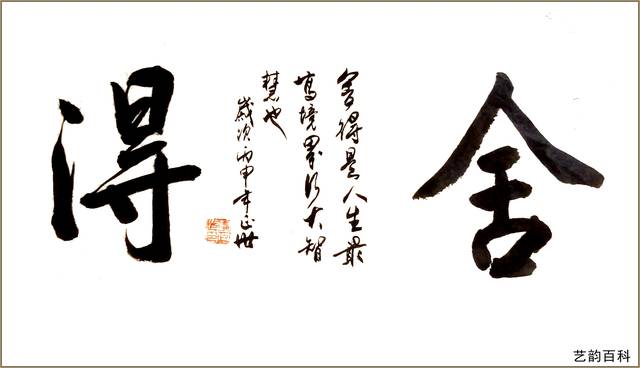 舍
得
舍得是人生最
高境界乃大智
慧也
歲次丙申年
艺韵百科